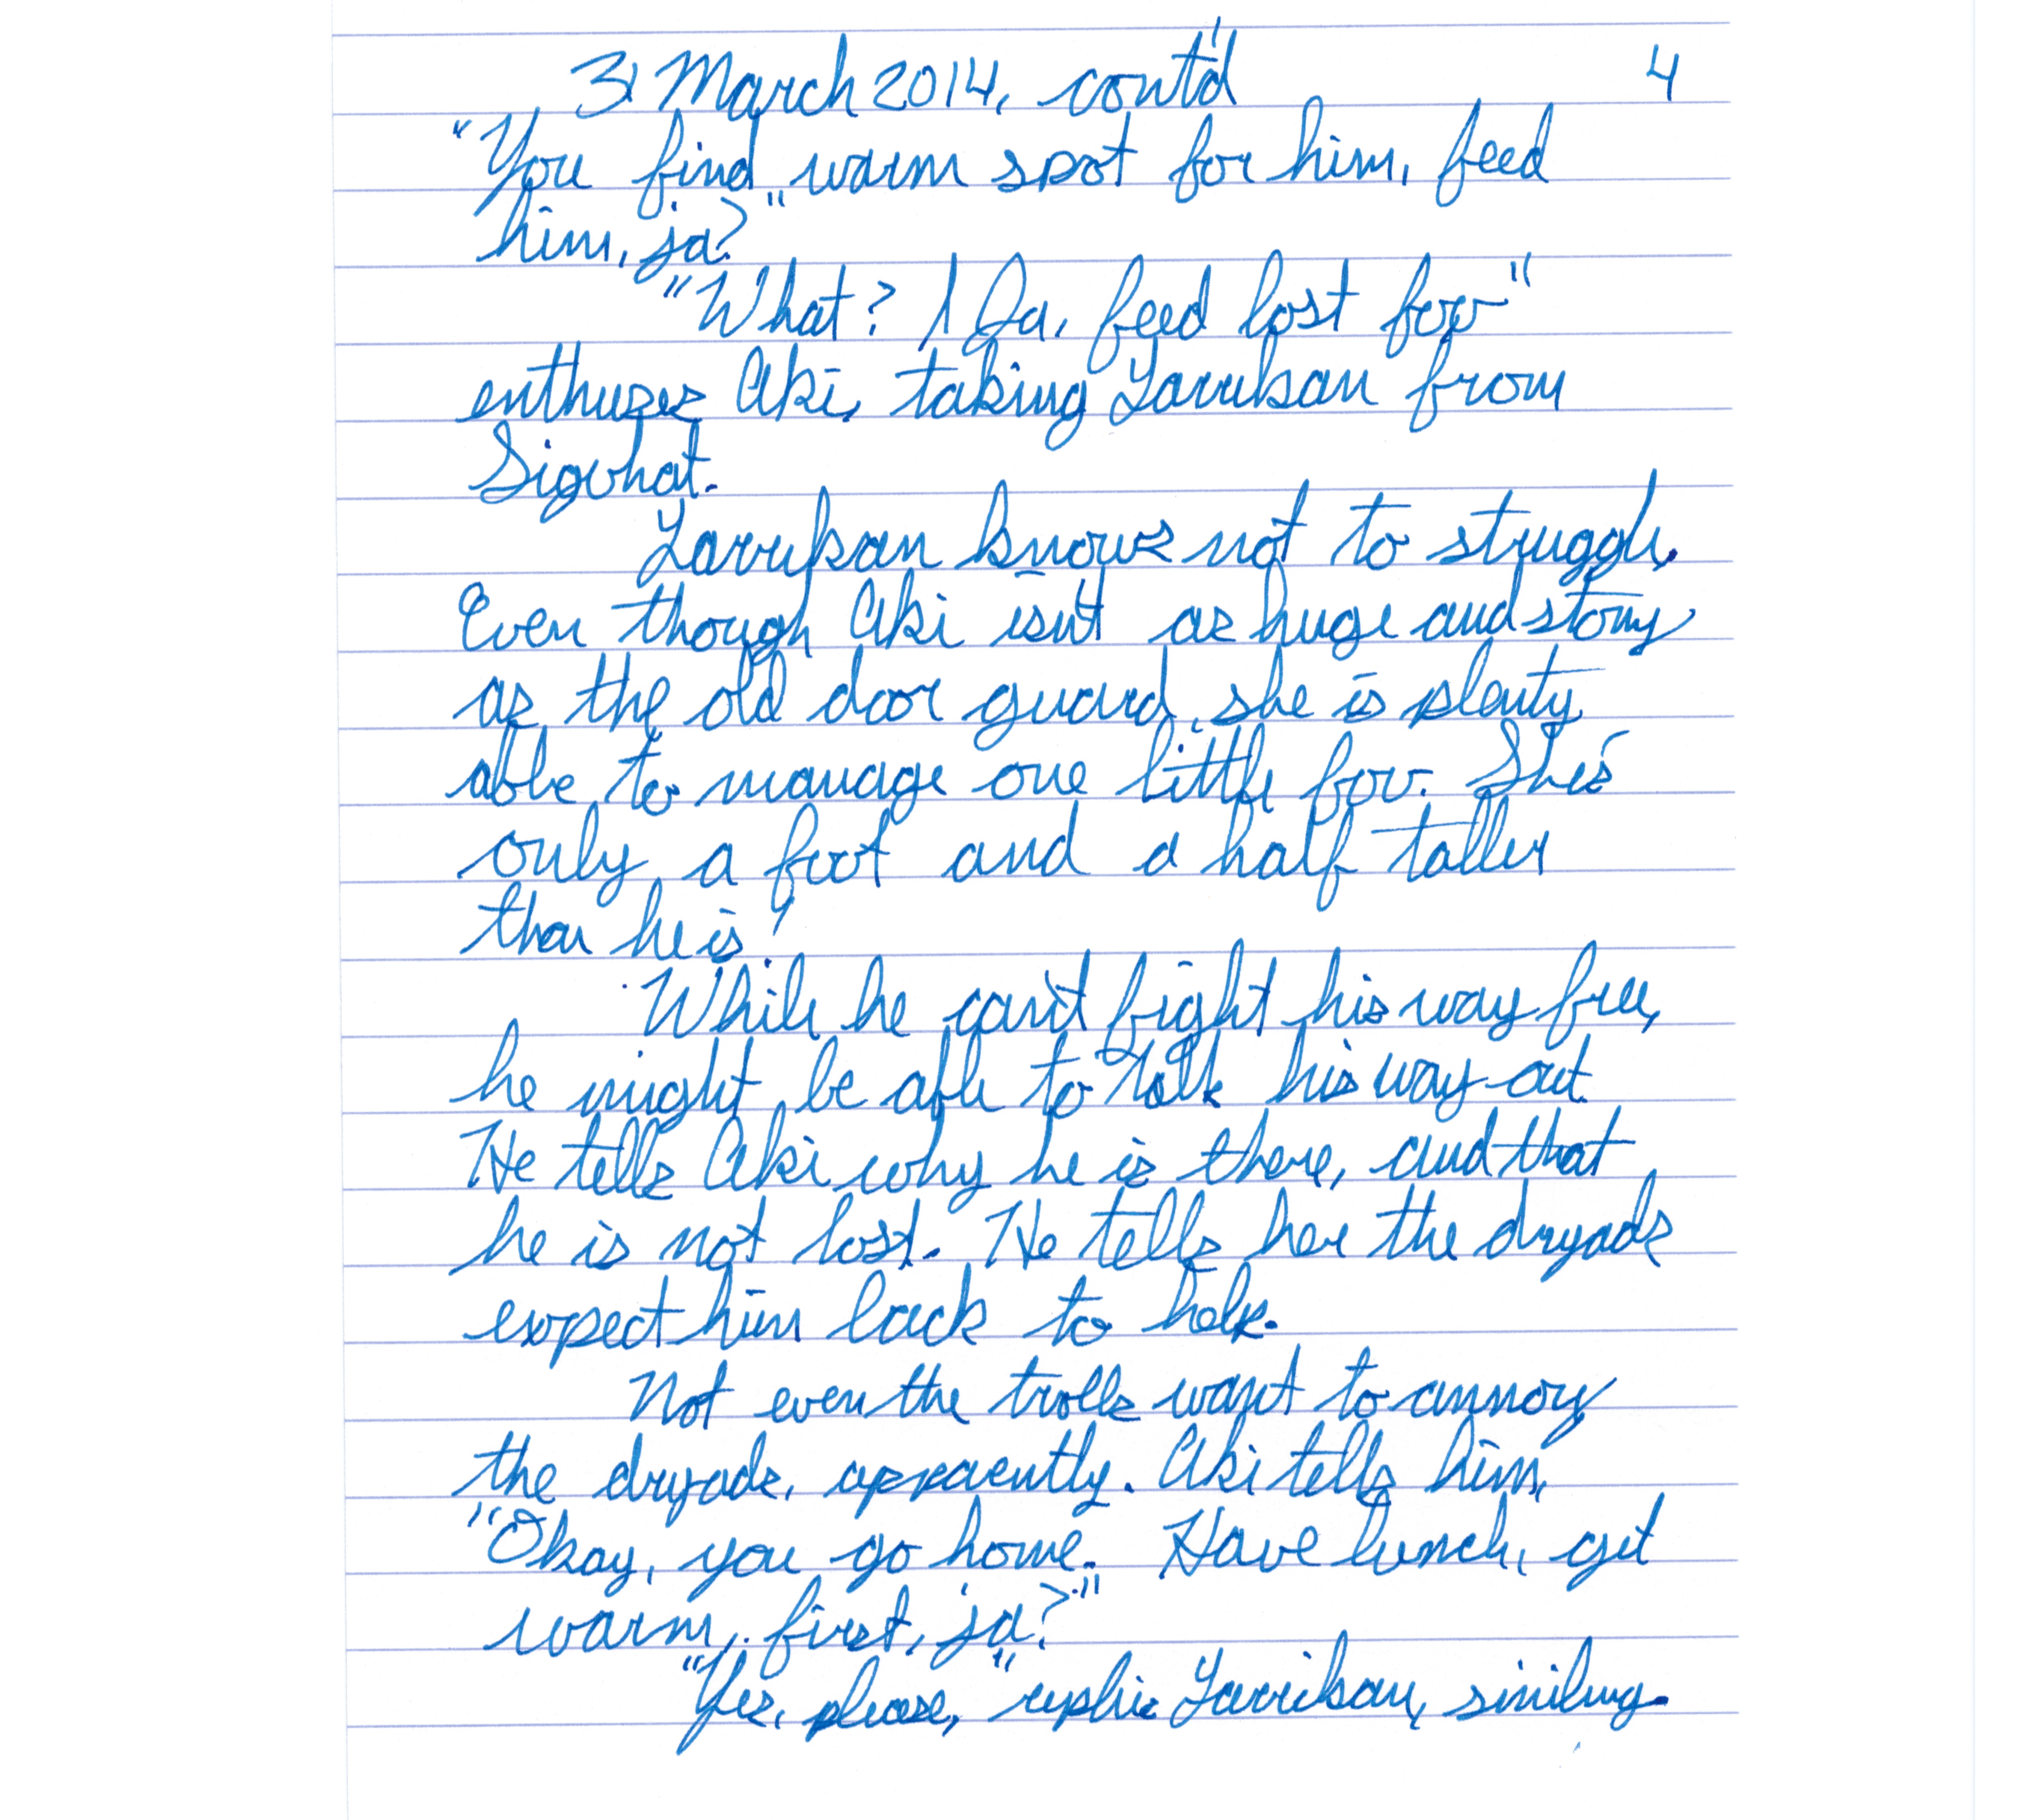 31 March 2014, cont'd 4
"You find warm spot for him, feed
him, ja?"
"What? / Ja, feed lost fov"
enthuses Aki, taking Yarrikan from
Sigvhat.
Yarrikan knows not to struggle.
Even though Aki isn't as huge and stony
as the old door guard, she is plenty
able to manage one little fov. She's
only a foot and a half taller
than he is!
While he can't fight his way free,
he might be able to talk his way out.
He tells Aki why he is there, and that
he is not lost. He tells her the dryads
expect him back to help.
Not even the trolls want to annoy
the dryads, apparently. Aki tells him,
"Okay, you go home. Have lunch, get
warm, first, ja?"
"Yes, please," replies Yarrikan, smiling.